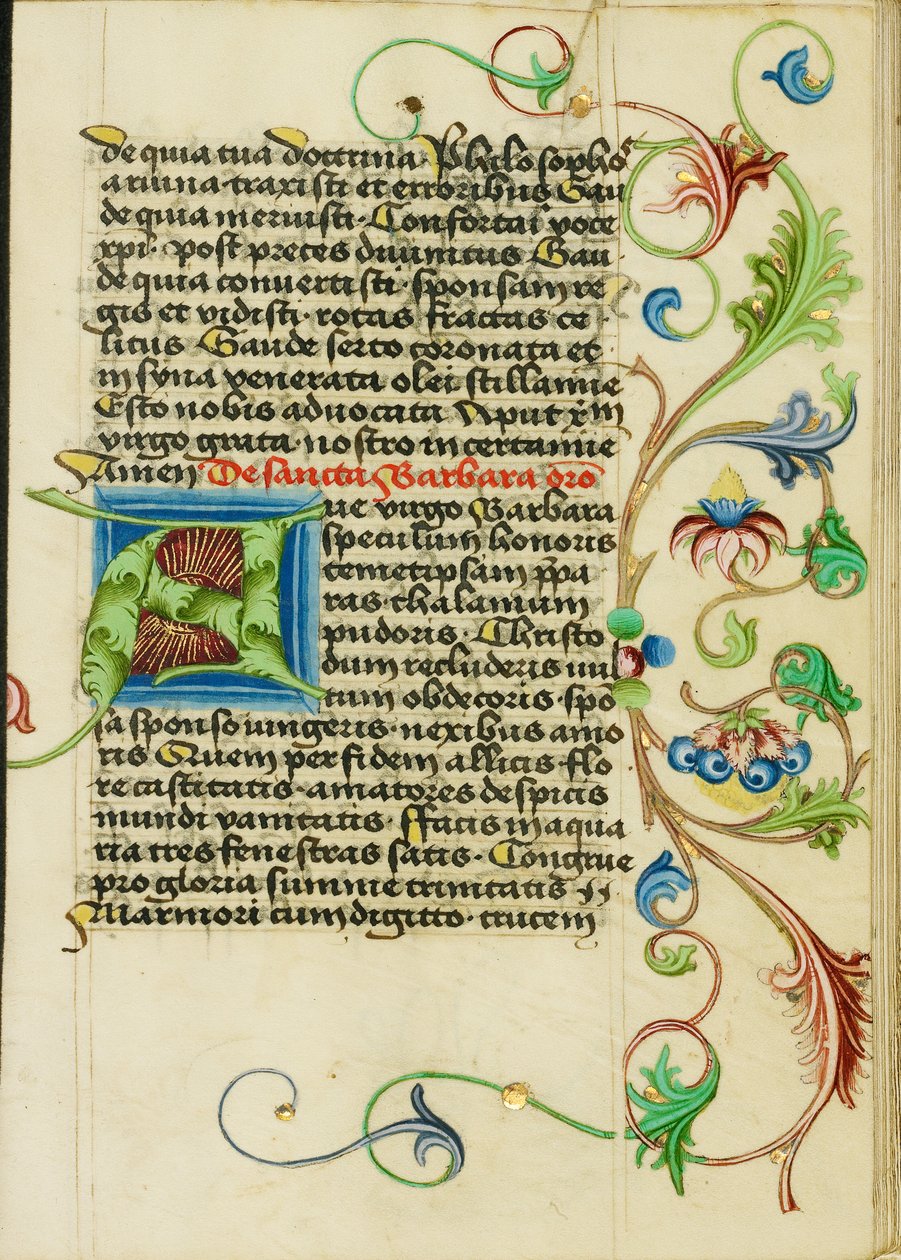 de quia tua doctrina Philosopho⁹
a ruina traxisti et erroribus Gau
de quia meruisti· Confortai voce
xpi· post preces divinitus Gau
de quia convertisti· sponsam re
gis et vidisti· rotas fractas ce·
litus Gaude serto coronata et
in syna venerata olei stillamie
Esto nobis advocata Aput xm
virgo grata· nostro in certamie
Amen De sancta Barbara oro
Ave virgo Barbara
speculum honoris
temetipsam ppa
ras· thalamum
pudoris· Christo
dum recluderis vul
tum obdecoris· spo
sa sponso iungeris· nexibus amo
ris Quem per fidem allicis flo
re castitatis· amatores despicis
mundi vanitatis· Facis in aqua
ria tres fenestras satis· Congrue
pro gloria summe trinitatis In
Marmori cum digitto· crucem